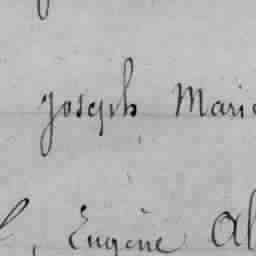 Joseph Marie
Eugène Al